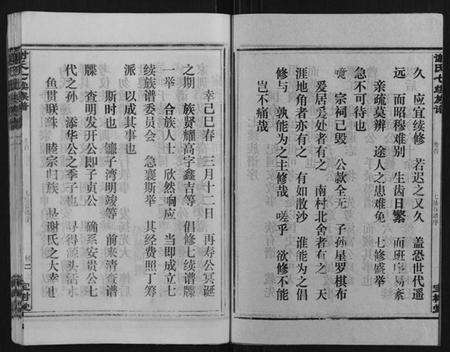 謝氏七续族譜
久　应宜续修　若迟之又久　盖恐世代遥
远　而昭穆难别　生齿日繁　而班序易紊
亲疏莫辨　途人之患难免　七修盛举
急不可待也
　宗祠已毁　公款全无　子孙星罗棋布
爰居爰处者有之　南村北舍者有之　天
涯地角者亦有之　有如散沙　谁能为之倡
修与　孰能为之主修哉　嗟乎　欲修不能
岂不痛哉
幸己巳春　三月十二日　再寿公冥诞
之期　族贤耀高字鑫吉等　倡修七续谱牒
一举　合族人士　欣然响应　当即成立七
续族谱委员会　急襄斯举　其经费照丁筹
派　以成其事也
斯时也　鏸子湾明竣等　前来湾查谱
牒　查明发开公即子贞公　确系安贵公七
代之孙　添华公之季子也　寻得源头活水
鱼贯联珠　睦宗归族　是谢氏之大幸也